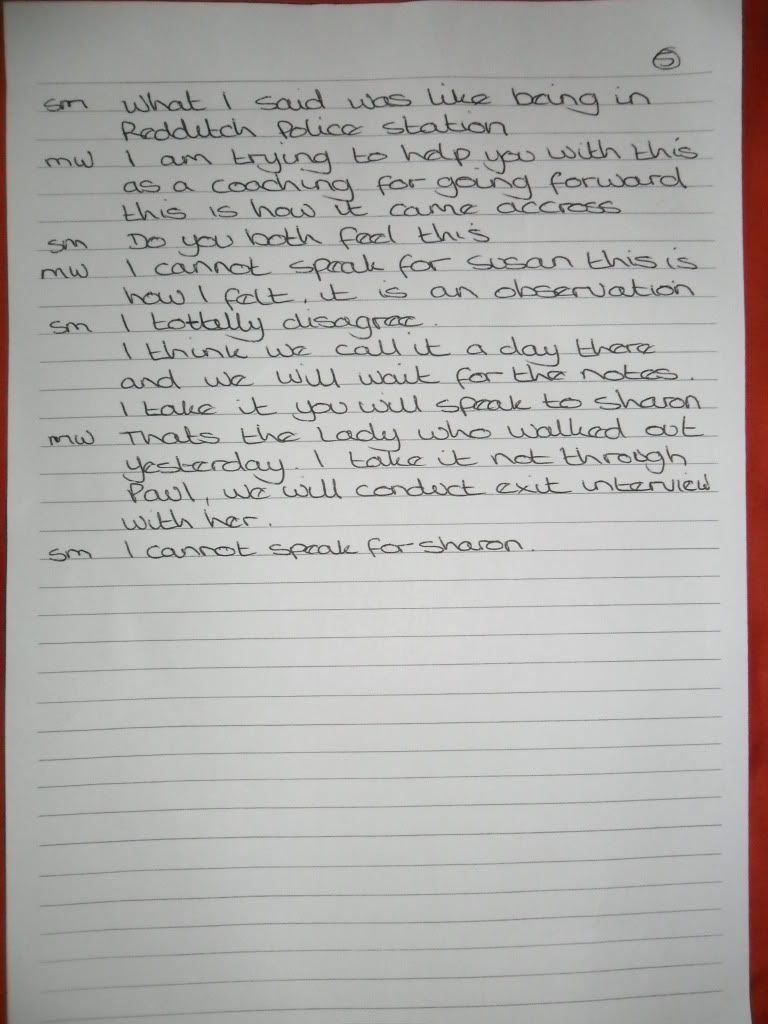 5
sm What I said was like being in
Redditch Police station
mw I am trying to help you with this
as a coaching for going forward
this is how it came accross
sm Do you both feel this
mw I cannot speak for susan this is
how I felt, it is an observation
sm I tottelly disagree.
I think we call it a day there
and we will wait for the notes.
I take it you will speak to sharon
mw Thats the Lady who walked out
yesterday. I take it not through
Paul, we will conduct exit interview
with her.
sm I cannot speak for sharon.